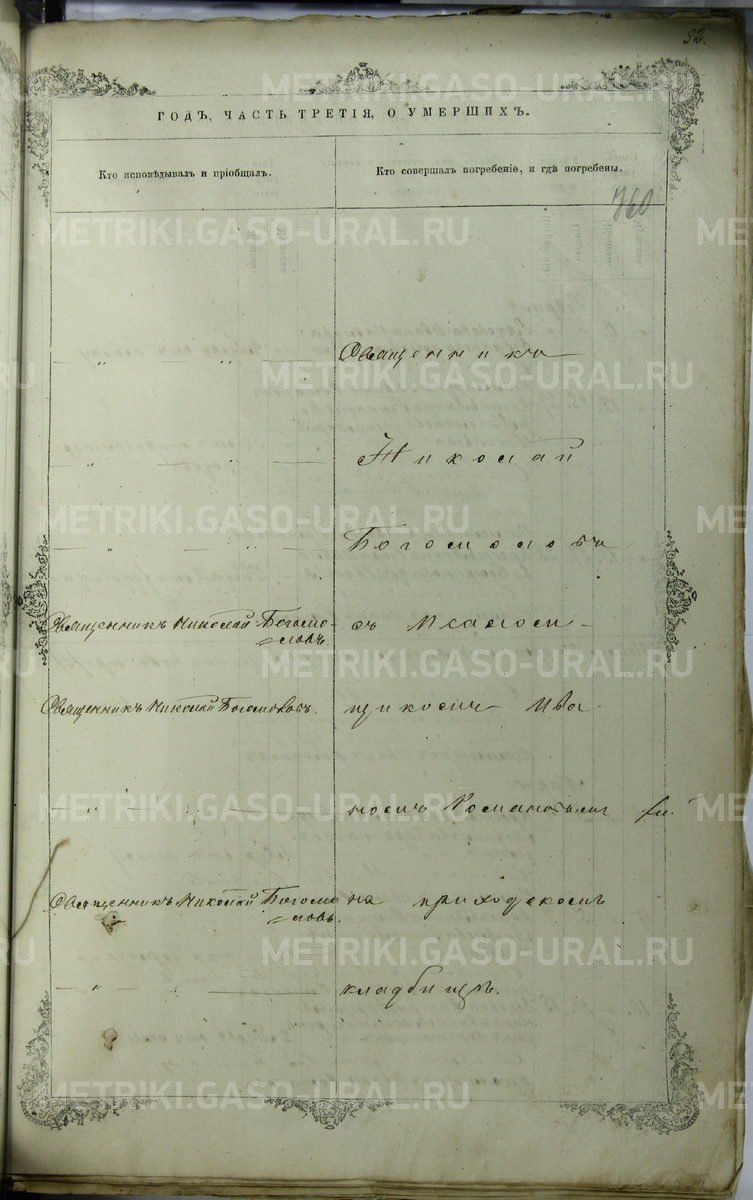 52.
ГОДЪ, ЧАСТЬ ТРЕТІЯ, О УМЕРШИХЪ.
Кто исповѣдывалъ и пріобщалъ.
Кто совершалъ погребеніе, и гдѣ погребены.
760
Священникъ
Николай
Богословъ
Священникъ Николай Богосло-
словъ.
съ Псаломщикомъ
Священникъ Николай Богословъ.
щикомъ Ива
номъ Романовымъ
Священникъ Николай Богосло
словъ.
на приходскомъ
кладбищѣ.
METRIKI.GASO-URAL.RU